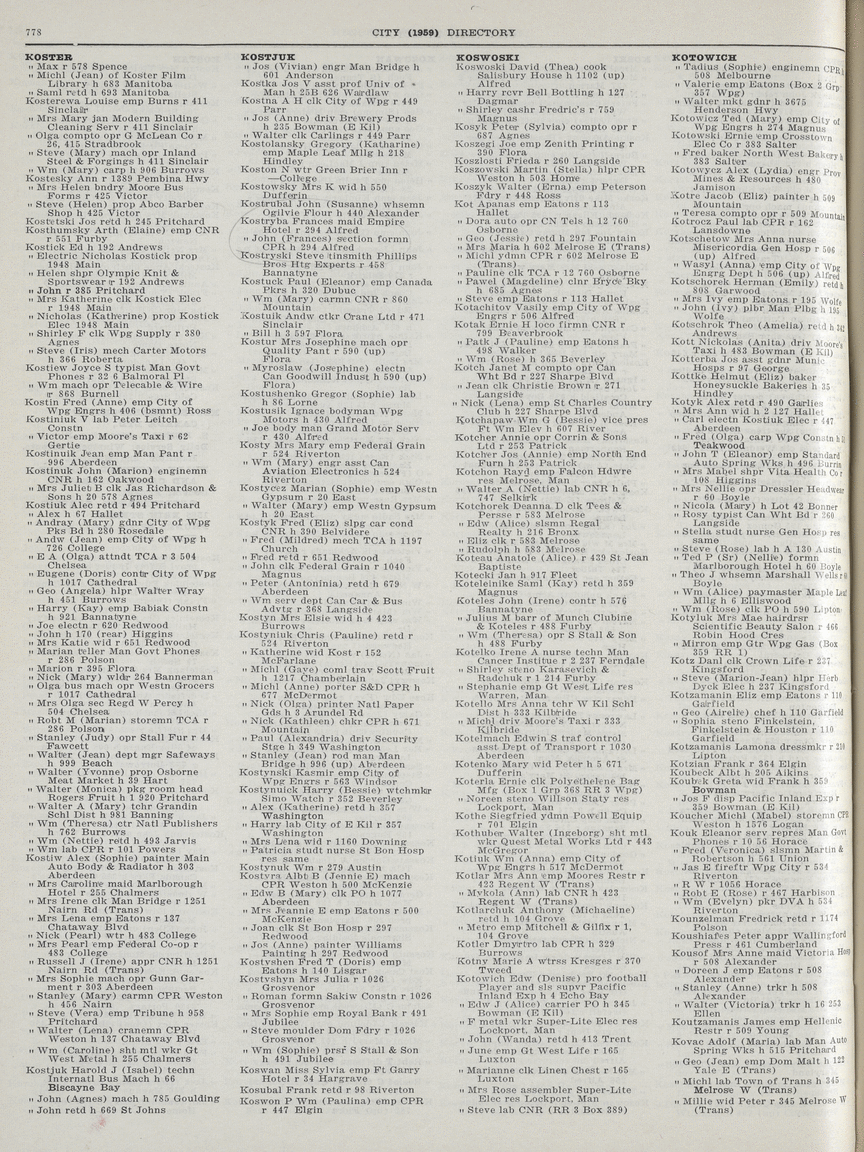 778
CITY (1959) DIRECTORY
KOSTER
" Max r 578 Spence
" Michl (Jean) of Koster Film
Library h 683 Manitoba
" Saml retd h 693 Manitoba
Kosterewa Louise emp Burns r 411
Sinclair
" Mrs Mary jan Modern Building
Cleaning Serv r 411 Sinclair
" Olga compto opr G McLean Co r
26, 415 Stradbrook
" Steve (Mary) mach opr Inland
Steel & Forgings h 411 Sinclair
" Wm (Mary) carp h 906 Burrows
Kostesky Ann r 1389 Pembina Hwy
" Mrs Helen bndry Moore Bus
Forms r 425 Victor
" Steve (Helen) prop Abco Barber
Shop h 425 Victor
Kostetski Jos retd h 245 Pritchard
Kosthumsky Arth (Elaine) emp CNR
r 551 Furby
Kostick Ed h 192 Andrews
" Electric Nicholas Kostick prop
1948 Main
" Helen shpr Olympic Knit &
Sportswear r 192 Andrews
" John r 385 Pritchard
" Mrs Katherine clk Kostick Elec
r 1948 Main
" Nicholas (Katherine) prop Kostick
Elec 1948 Main
" Shirley F clk Wpg Supply r 380
Agnes
" Steve (Iris) mech Carter Motors
h 366 Roberta
Kostiew Joyce S typist Man Govt
Phones r 32 6 Balmoral Pl
" Wm mach opr Telecable & Wire
r 868 Burnell
Kostin Fred (Anne) emp City of
Wpg Engrs h 406 (bsmnt) Ross
Kostiniuk V lab Peter Leitch
Constn
" Victor emp Moore's Taxi r 62
Gertie
Kostinuik Jean emp Man Pant r
996 Aberdeen
Kostinuk John (Marion) enginemn
CNR h 162 Oakwood
" Mrs Juliet B clk Jas Richardson &
Sons h 20 578 Agnes
Kostiuk Alec retd r 494 Pritchard
" Alex h 67 Hallet
" Andray (Mary) gdnr City of Wpg
Pks Bd h 280 Rosedale
" Andw (Jean) emp City of Wpg h
726 College
" E A (Olga) attndt TCA r 3 504
Chelsea
" Eugene (Doris) contr City of Wpg
h 1017 Cathedral
" Geo (Angela) hlpr Walter Wray
h 451 Burrows
" Harry (Kay) emp Babiak Constn
h 921 Bannatyne
" Joe electn r 620 Redwood
" John h 170 (rear) Higgins
" Mrs Katie wid r 651 Redwood
" Marian teller Man Govt Phones
r 286 Polson
" Marion r 395 Flora
" Nick (Mary) wldr 264 Bannerman
" Olga bus mach opr Westn Grocers
r 1017 Cathedral
" Mrs Olga sec Regd W Percy h
504 Chelsea
" Robt M (Marian) storemn TCA r
286 Polson
" Stanley (Judy) opr Stall Fur r 44
Fawcett
" Walter (Jean) dept mgr Safeways
h 999 Beach
" Walter (Yvonne) prop Osborne
Meat Market h 39 Hart
" Walter (Monica) pkg room head
Rogers Fruit h 1 920 Pritchard
" Walter A (Mary) tchr Grandin
Schl Dist h 981 Banning
" Wm (Theresa) ctr Natl Publishers
h 762 Burrows
" Wm (Nettie) retd h 493 Jarvis
" Wm lab CPR r 101 Powers
Kostiw Alex (Sophie) painter Main
Auto Body & Radiator h 303
Aberdeen
" Mrs Caroline maid Marlborough
Hotel r 255 Chalmers
" Mrs Irene clk Man Bridge r 1251
Nairn Rd (Trans)
" Mrs Lena emp Eatons r 137
Chataway Blvd
" Nick (Pearl) wtr h 483 College
" Mrs Pearl emp Federal Co-op r
483 College
" Russell J (Irene) appr CNR h 1251
Nairn Rd (Trans)
" Mrs Sophie mach opr Gunn Gar-
ment r 303 Aberdeen
" Stanley (Mary) carmn CPR Weston
h 456 Nairn
" Steve (Vera) emp Tribune h 958
Pritchard
" Walter (Lena) cranemn CPR
Weston h 137 Chataway Blvd
" Wm (Caroline) sht mtl wkr Gt
West Metal h 255 Chalmers
Kostjuk Harold J (Isabel) techn
Internatl Bus Mach h 66
Biscayne Bay
" John (Agnes) mach h 785 Goulding
" John retd h 669 St Johns
KOSTJUK
" Jos (Vivian) engr Man Bridge h
601 Anderson
Kostka Jos V asst prof Univ of
Man h 25B 626 Wardlaw
Kostna A H clk City of Wpg r 449
Parr
" Jos (Anne) driv Brewery Prods
h 235 Bowman (E Kil)
" Walter clk Carlings r 449 Parr
Kostolansky Gregory (Katharine)
emp Maple Leaf Mllg h 218
Hindley
Koston N wtr Green Brier Inn r
—College
Kostowsky Mrs K wid h 550
Dufferin
Kostrubal John (Susanne) whsemn
Ogilvie Flour h 440 Alexander
Kostryba Frances maid Empire
Hotel r 294 Alfred
" John (Frances) section formn
CPR h 294 Alfred
Kostryski Steve tinsmith Phillips
Bros Htg Experts r 458
Bannatyne
Kostuck Paul (Eleanor) emp Canada
Pkrs h 320 Dubuc
" Wm (Mary) carmn CNR r 860
Mountain
Kostuik Andw ctkr Crane Ltd r 471
Sinclair
" Bill h 3 597 Flora
Kostur Mrs Josephine mach opr
Quality Pant r 590 (up)
Flora
" Myroslaw (Josephine) electn
Can Goodwill Indust h 590 (up)
Flora)
Kostushenko Gregor (Sophie) lab
h 86 Lorne
Kostusik Ignace bodyman Wpg
Motors h 430 Alfred
" Joe body man Grand Motor Serv
r 430 Alfred
Kosty Mrs Mary emp Federal Grain
r 524 Riverton
" Wm (Mary) engr asst Can
Aviation Electronics h 524
Riverton
Kostycez Marian (Sophie) emp Westn
Gypsum r 20 East
" Walter (Mary) emp Westn Gypsum
h 20 East
Kostyk Fred (Eliz) slpg car cond
CNR h 390 Belvidere
" Fred (Mildred) mech TCA h 1197
Church
" Fred retd r 651 Redwood
" John clk Federal Grain r 1040
Magnus
" Peter (Antoninia) retd h 679
Aberdeen
" Wm serv dept Can Car & Bus
Advtg r 368 Langside
Kostyn Mrs Elsie wid h 4 423
Burrows
Kostyniuk Chris (Pauline) retd r
524 Riverton
" Katherine wid Kost r 152
McFarlane
" Michl (Gaye) coml trav Scott Fruit
h 1217 Chamberlain
" Michl (Anne) porter S&D CPR h
677 McDermot
" Nick (Olga) printer Natl Paper
Gds h 3 Arundel Rd
" Nick (Kathleen) chkr CPR h 671
Mountain
" Paul (Alexandria) driv Security
Stge h 349 Washington
" Stanley (Jean) rod man Man
Bridge h 996 (up) Aberdeen
Kostynski Kasmir emp City of
Wpg Engrs r 563 Windsor
Kostynuick Harry (Bessie) wtchmkr
Simo Watch r 352 Beverley
" Alex (Katherine) retd h 357
Washington
" Harry lab City of E Kil r 357
Washington
" Mrs Lena wid r 1160 Downing
" Patricia studt nurse St Bon Hosp
res same
Kostynuk Wm r 279 Austin
Kostyra Albt B (Jennie E) mach
CPR Weston h 500 McKenzie
" Edw B (Mary) clk PO h 1077
Aberdeen
" Mrs Jeannie E emp Eatons r 500
McKenzie
" Joan clk St Bon Hosp r 297
Redwood
" Jos (Anne) painter Williams
Painting h 297 Redwood
Kostyshen Fred T (Doris) emp
Eatons h 140 Lisgar
Kostyshyn Mrs Julia r 1026
Grosvenor
" Roman formn Sakiw Constn r 1026
Grosvenor
" Mrs Sophie emp Royal Bank r 491
Jubilee
" Steve moulder Dom Fdry r 1026
Grosvenor
" Wm (Sophie) prsr S Stall & Son
h 491 Jubilee
Koswan Miss Sylvia emp Ft Garry
Hotel r 34 Hargrave
Kosubal Frank retd r 98 Riverton
Koswon P Wm (Paulina) emp CPR
r 447 Elgin
KOSWOSKI
Koswoski David (Thea) cook
Salisbury House h 1102 (up)
Alfred
" Harry rcvr Bell Bottling h 127
Dagmar
" Shirley cashr Fredric's r 759
Magnus
Kosyk Peter (Sylvia) compto opr r
687 Agnes
Koszegi Joe emp Zenith Printing r
390 Flora
Koszlosti Frieda r 260 Langside
Koszowski Martin (Stella) hlpr CPR
Weston h 503 Home
Koszyk Walter (Erna) emp Peterson
Fdry r 448 Ross
Kot Apanas emp Eatons r 113
Hallet
" Dora auto opr CN Tels h 12 760
Osborne
" Geo (Jessie) retd h 297 Fountain
" Mrs Maria h 602 Melrose E (Trans)
" Michl ydmn CPR r 602 Melrose E
(Trans)
" Pauline clk TCA r 12 760 Osborne
" Pawel (Magdeline) clnr Bryce Bky
h 685 Agnes
" Steve emp Eatons r 113 Hallet
Kotachitov Vasily emp City of Wpg
Engrs r 506 Alfred
Kotak Ernie H loco firmn CNR r
799 Beaverbrook
" Patk J (Pauline) emp Eatons h
498 Walker
" Wm (Rose) h 365 Beverley
Kotch Janet M compto opr Can
Wht Bd r 227 Sharpe Blvd
" Jean clk Christie Brown r 271
Langside
" Nick (Lena) emp St Charles Country
Club h 227 Sharpe Blvd
Kotchapaw Wm G (Bessie) vice pres
Ft Wm Elev h 607 River
Kotcher Annie opr Corrin & Sons
Ltd r 253 Patrick
Kotcher Jos (Annie) emp North End
Furn h 253 Patrick
Kotchon Rayd emp Falcon Hdwre
res Melrose, Man
" Walter A (Nettie) lab CNR h 6,
747 Selkirk
Kotchorek Deanna D clk Tees &
Persse r 583 Melrose
" Edw (Alice) slsmn Regal
Realty h 216 Bronx
" Eliz clk r 583 Melrose
" Rudolph h 583 Melrose
Koteau Anatole (Alice) r 439 St Jean
Baptiste
Kotecki Jan h 917 Fleet
Koteleinike Saml (Kay) retd h 359
Magnus
Koteles John (Irene) contr h 576
Bannatyne
" Julius M barr of Munch Clubine
& Koteles r 488 Furby
" Wm (Theresa) opr S Stall & Son
h 488 Furby
Kotelko Irene A nurse techn Man
Cancer Institue r 2 237 Ferndale
" Shirley steno Karasevich &
Radchuk r 1 214 Furby
" Stephanie emp Gt West Life res
Warren, Man
Kotello Mrs Anna tchr W Kil Schl
Dist h 333 Kilbride
" Michl driv Moore's Taxi r 333
Kilbride
Kotelmach Edwin S traf control
asst Dept of Transport r 1030
Aberdeen
Kotenko Mary wid Peter h 5 671
Dufferin
Koteria Ernie clk Polyethelene Bag
Mfg (Box 1 Grp 368 RR 3 Wpg)
" Noreen steno Willson Staty res
Lockport, Man
Kothe Siegfried ydmn Powell Equip
r 701 Elgin
Kothuber Walter (Ingeborg) sht mtl
wkr Quest Metal Works Ltd r 443
McGregor
Kotiuk Wm (Anna) emp City of
Wpg Engrs h 517 McDermot
Kotlar Mrs Ann emp Moores Restr r
423 Regent W (Trans)
" Mykola (Ann) lab CNR h 423
Regent W (Trans)
Kotlarchuk Anthony (Michaeline)
retd h 104 Grove
" Metro emp Mitchell & Gilfix r 1,
104 Grove
Kotler Dmyrtro lab CPR h 329
Burrows
Kotny Marie A wtrss Kresges r 370
Tweed
Kotowich Edw (Denise) pro football
Player and sls supvr Pacific
Inland Exp h 4 Echo Bay
" Edw J (Alice) carrier PO h 345
Bowman (E Kil)
" F metal wkr Super-Lite Elec res
Lockport, Man
" John (Wanda) retd h 413 Trent
" June emp Gt West Life r 165
Luxton
" Marianne clk Linen Chest r 165
Luxton
" Mrs Rose assembler Super-Lite
Elec res Lockport, Man
" Steve lab CNR (RR 3 Box 389)
KOTOWICH
" Tadius (Sophie) enginemn CPR h
508 Melbourne
" Valerie emp Eatons (Box 2 Grp
357 Wpg)
" Walter mkt gdnr h 3675
Henderson Hwy
Kotowicz Ted (Mary) emp City of
Wpg Engrs h 274 Magnus
Kotowski Ernie emp Crosstown
Elec Co r 383 Salter
" Fred baker North West Bakery h
383 Salter
Kotowycz Alex (Lydia) engr Prov
Mines & Resources h 480
Jamison
Kotre Jacob (Eliz) painter h 509
Mountain
" Teresa compto opr r 509 Mountain
Kotrocz Paul lab CPR r 162
Lansdowne
Kotschetow Mrs Anna nurse
Misericordia Gen Hosp r 506
(up) Alfred
" Wasyl (Anna) emp City of Wpg
Engrg Dept h 506 (up) Alfred
Kotschorek Herman (Emily) retd h
808 Garwood
" Mrs Ivy emp Eatons r 195 Wolfe
" John (Ivy) plbr Man Plbg h 195
Wolfe
Kotschrok Theo (Amelia) retd h
Andrews
Kott Nickolas (Anita) driv Moore's
Taxi h 483 Bowman (E Kil)
Kotterba Jos asst gdnr Munic
Hosps r 97 George
Kottke Helmut (Eliz) baker
Honeysuckle Bakeries h 35
Hindley
Kotyk Alex retd r 490 Garlies
" Mrs Ann wid h 2 127 Hallet
" Carl electn Kostiuk Elec r 447
Aberdeen
" Fred (Olga) carp Wpg Constn h
" John T (Eleanor) emp Standard
Auto Spring Wks h 496 Burrin
" Mrs Mabel shpr Vita Health Co r
108 Higgins
" Mrs Nellie opr Dressler Headwear
r 60 Boyle
" Nicola (Mary) h Lot 42 Bonner
" Rosy typist Can Wht Bd r 260
Langside
" Stella studt nurse Gen Hosp res
same
" Steve (Rose) lab h A 130 Austin
" Ted P (Sr) (Nellie) formn
Marlborough Hotel h 60 Boyle
" Theo J whsemn Marshall Wells r
Boyle
" Wm (Alice) paymaster Maple Leaf
Mllg h 6 Elliswood
" Wm (Rose) clk PO h 590 Lipton
Kotyluk Mrs Mae hairdrsr
Scientific Beauty Salon r 466
Robin Hood Cres
" Mirron emp Gtr Wpg Gas (Box
359 RR 1)
Kotz Danl clk Crown Life r 237
Kingsford
" Steve (Marion-Jean) hlpr Herb
Dyck Elec h 237 Kingsford
Kotzamanis Eliz emp Eatons r 110
Garfield
" Geo (Airelie) chef h 110 Garfield
" Sophia steno Finkelstein,
Finkelstein & Houston r 110
Garfield
Kotzamanis Lamona dressmkr r 250
Lipton
Kotzian Frank r 364 Elgin
Koubeck Albt h 205 Aikins
Koubek Greta wid Frank h 359
Bowman
" Jos F disp Pacific Inland Exp r
359 Bowman (E Kil)
Koucher Michl (Mabel) storemn CPR
Weston h 1576 Logan
Kouk Eleanor serv repres Man Govt
Phones r 10 56 Horace
" Fred (Veronica) slsmn Martin &
Robertson h 561 Union
" Jas E fireftr Wpg City r 534
Riverton
" R W r 1056 Horace
" Robt E (Rose) r 467 Harbison
" Wm (Evelyn) pkr DVA h 534
Riverton
Kounzelman Fredrick retd r 1174
Polson
Koushiafes Peter appr Wallingford
Press r 461 Cumberland
Kousof Mrs Anne maid Victoria Hosp
r 508 Alexander
" Doreen J emp Eatons r 508
Alexander
" Stanley (Anne) trkr h 508
Alexander
" Walter (Victoria) trkr h 16 253
Ellen
Koutzamanis James emp Hellenic
Restr r 509 Young
Kovac Adolf (Maria) lab Man Auto
Spring Wks h 515 Pritchard
" Geo (Jean) emp Dom Malt h 122
Yale E (Trans)
" Michl lab Town of Trans h 345
Melrose W (Trans)
" Millie wid Peter r 345 Melrose W
(Trans)